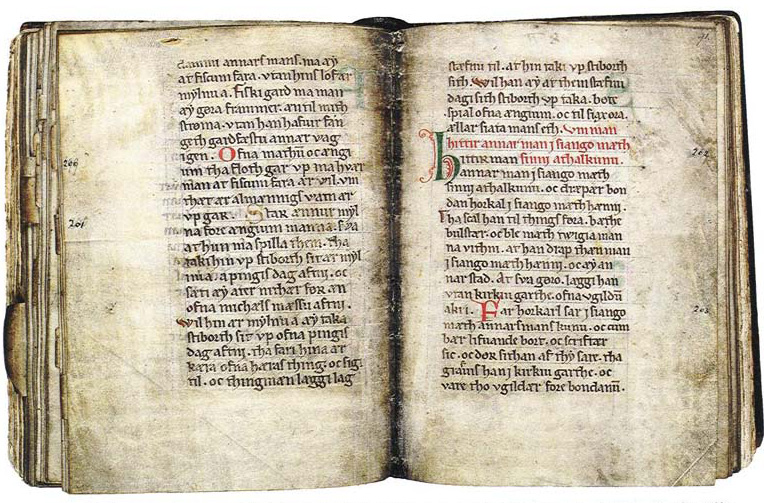 dammi annars mans. ma æy
at fiscum fara. vtan hins lof ær
mylnu a. Fiski gard ma man
æy gøra frammer. æn til mith
stroma. vtan han hafuir fan
geth gardfæsti annær vag
ingen. Ofna mathū oc ængi
um tha floth gar vp ma hvær
man at fiscum fara ær vil. vm
thæt ær almænnigs vatn ær
vp gar. Star ænnur myl
na fore ængium manna. sva
at hun ma spilla them. tha
taki hin vp stiborth sit ær myl
nu a. a pingis dag aftni. oc
sæti æy atær nithær for æn
ofna michæls mæssu aftni.
wil hin ær mylnu a æy taka
stiborth sit vp ofna pingis
dag aftni. tha fari hin ær
kæra ofna hæras thing. oc sigi
til. oc thingmæn laggi lag
stæfnu til. at hin taki vp stiborth
sith. Wil han æy at them stæfnu
dagi sith stiborth vp taka. bøte
spial ofna ængium. oc til siax ora.
ællar siata mans eth. Vm man
hittir annar man i siango mæth
Hittir man sinni athalkunu.
annar man i siango mæth
sinni athalkunu. oc dræpær bon
dan horkal i siango mæth hænni.
tha scal han til things føra. bæthe
bulstær. oc ble mæth twigia man
na vitnn. at han drap thæn man
i siango mæth hænni. oc æy an
nar stad. At sva gøro. laggi han
vtan kirkiu garthe. ofna vgildū
akri. Far horkarl sar i siango
mæth annars mans kunu. oc cum
bær lifuande bort. oc scriftær
sic. oc dør sithan af thy sare. tha
giauis han i kirkiu garthe. oc
vare tho vgildær fore bondanū.
266
261
262
263